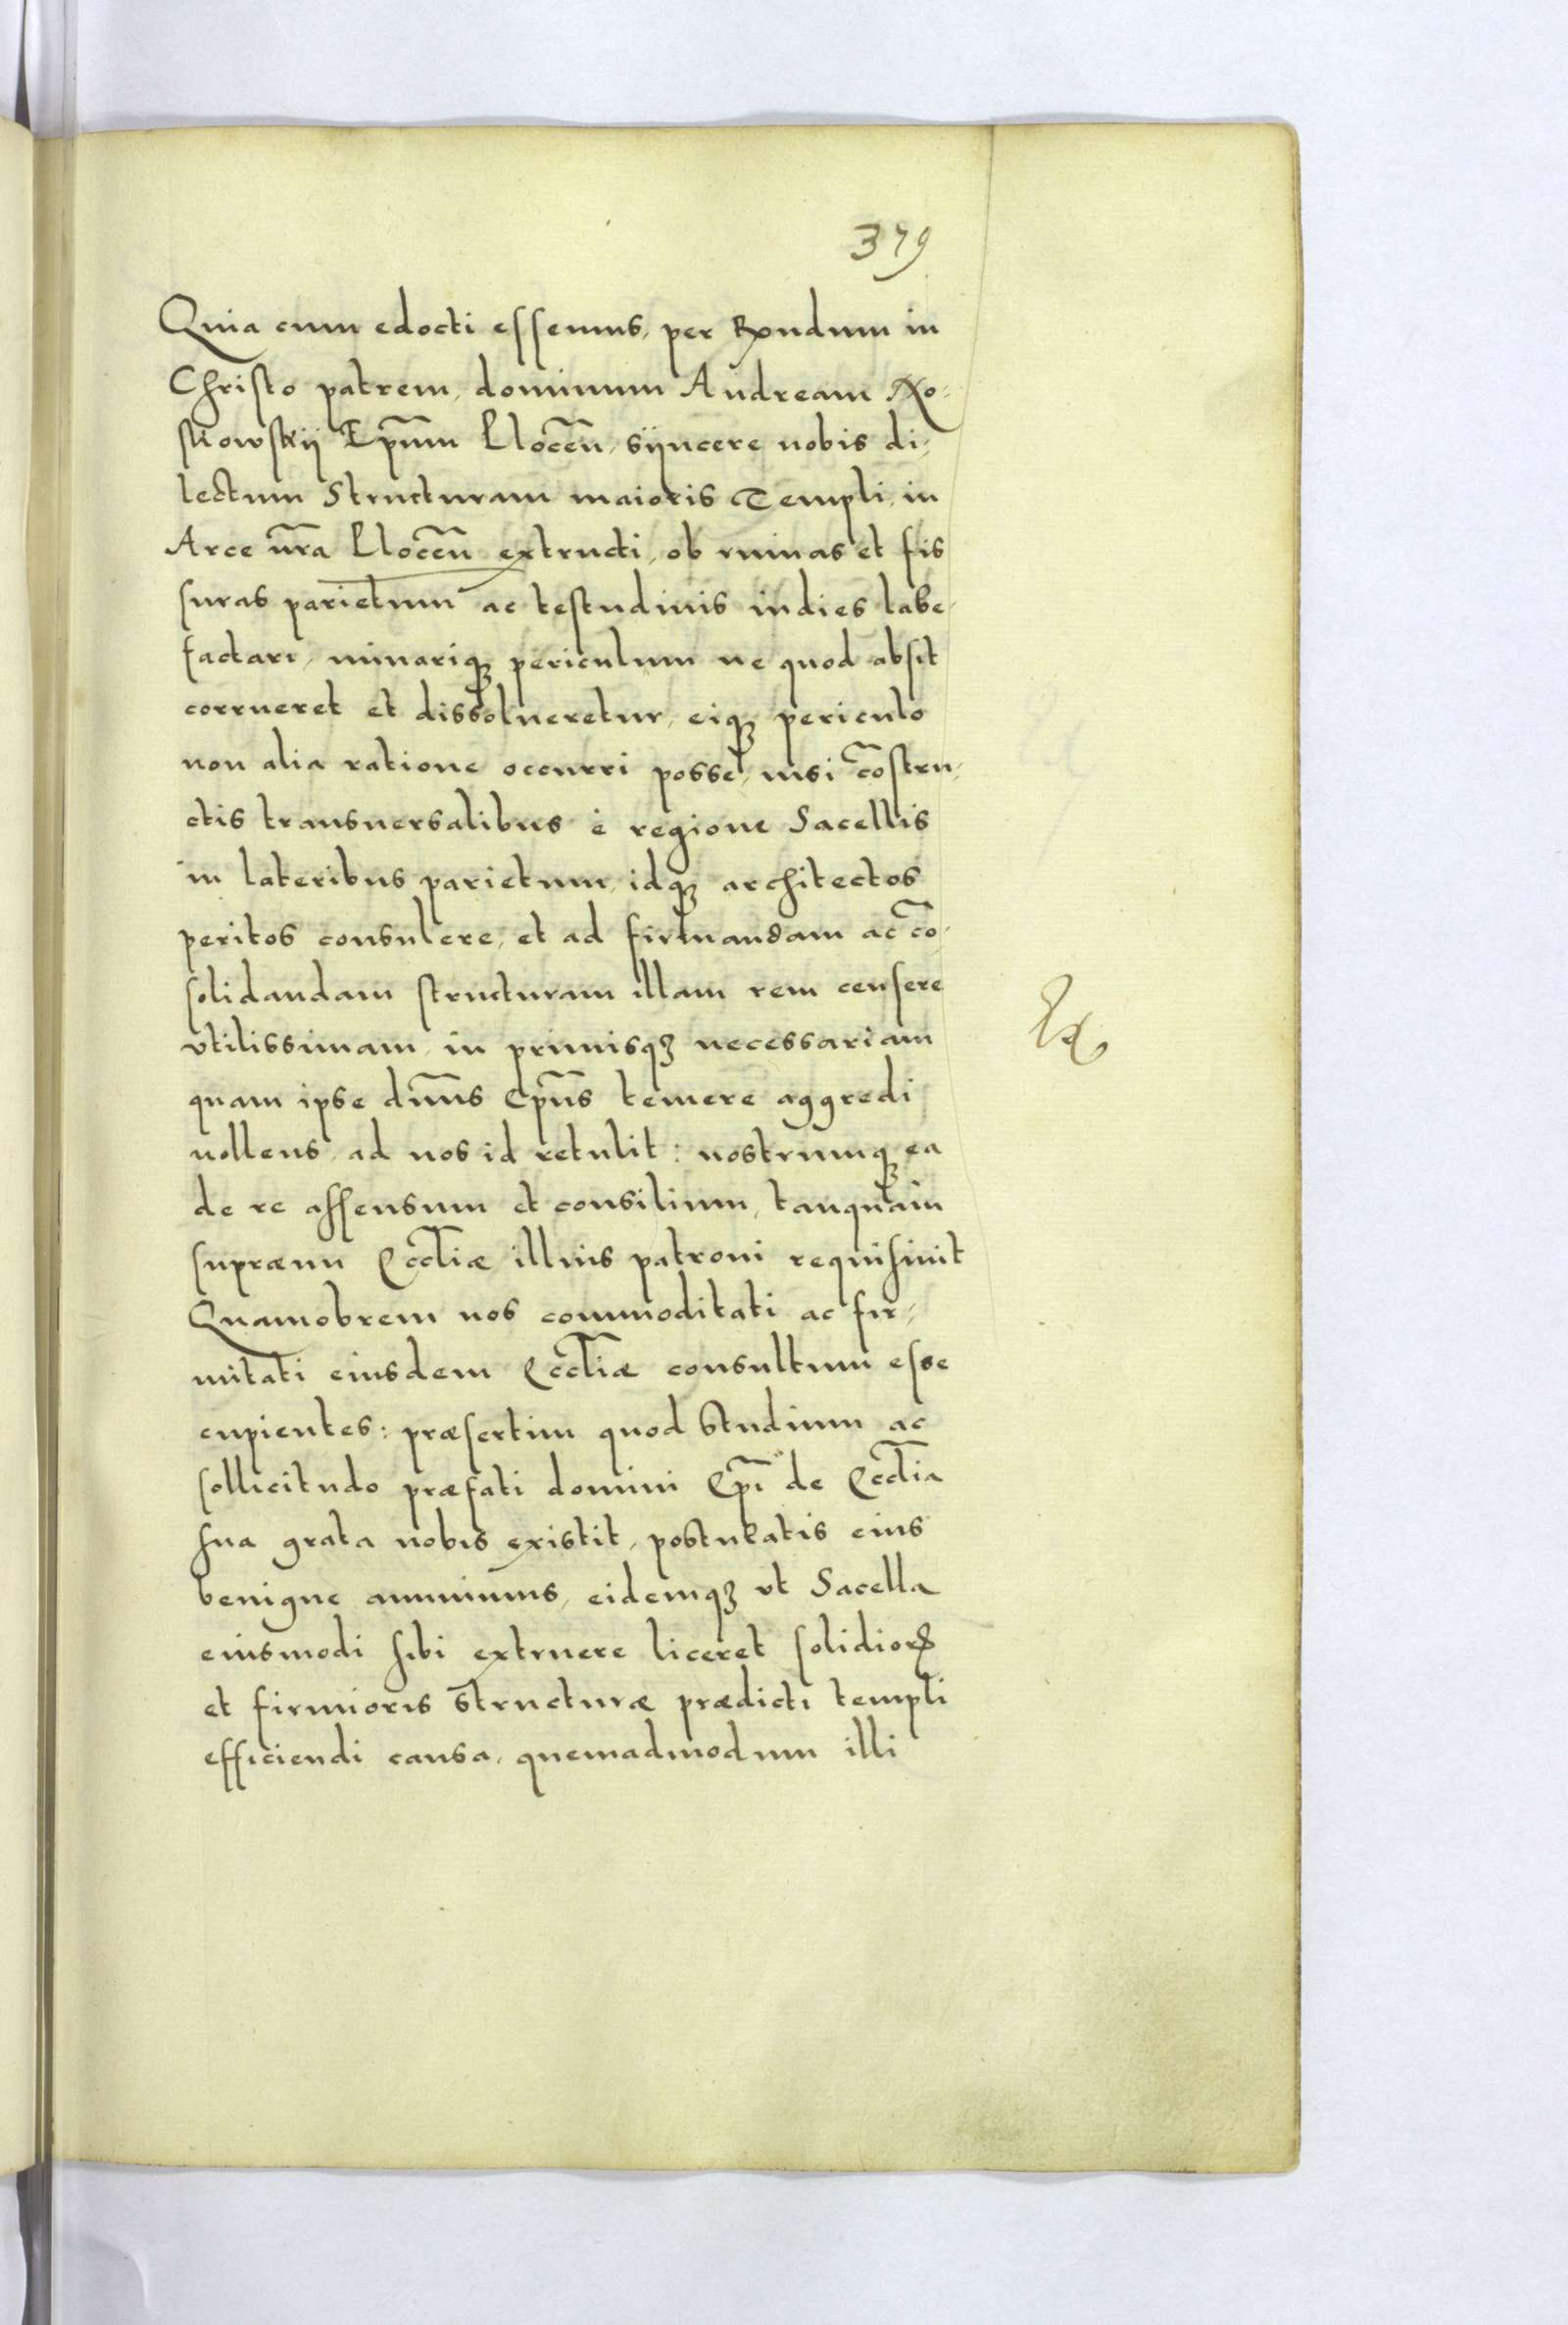 379
Quia cum edocti essemus, per Rndum in
Christo patrem, dominum Andream No-
skowskij Epum Plocen, sijncere nobis di-
lectum Structuram maioris Templi in
Arce nra Plocen extructi, ob ruinas et fis
suras parietum ac testudinis indies labe-
factari, minariq; periculum ne quod absit
corrueret et dissolueretur, eiq; periculo
non alia ratione occurri posse, nisi costru-
ctis transuersalibus è regione Sacellis
in lateribus parietum, idq; architectos
peritos consulere, et ad firmandam ac co-
solidandam structuram illam rem censere
vtilissimam, in primisq; necessariam
quam ipse dnus Epus temere aggredi
nollens, ad nos id retulit: nostrumq; ea
de re assensum et consilium, tanquam
supræmi Eccliæ illius patroni requisiuit
Quamobrem nos commoditati ac fir-
mitati eiusdem Eccliæ consultum esse
cupientes: præsertim quod studium ac
sollicitudo præfati domini Epi de Ecclia
sua grata nobis existit, postulatis eius
benigne annuimus, eidemq; vt Sacella
eiusmodi sibi extruere liceret solidioris
et firmioris structuræ prædicti templi
efficiendi causa, quemadmodum illi